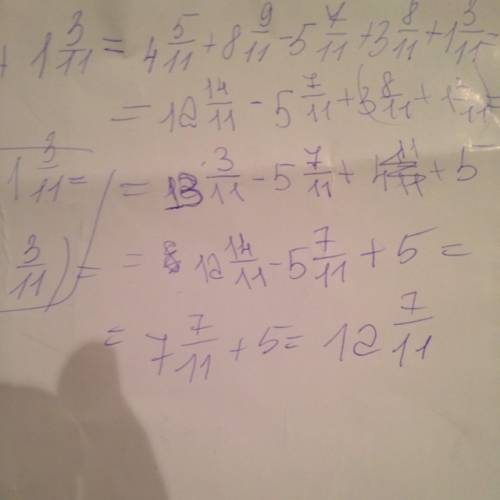 + 1 3/11 = 4 5/11 + 8 9/11 - 5 7/11 + 3 8/11 + 1 3/11 =
= 12 14/11 - 5 7/11 + (3 8/11 + 1 3/11) =
1 3/11 = = 13 3/11 - 5 7/11 + 4 11/11 + 5
3/11) = = 12 14/11 - 5 7/11 + 5 =
= 7 7/11 + 5 = 12 7/11